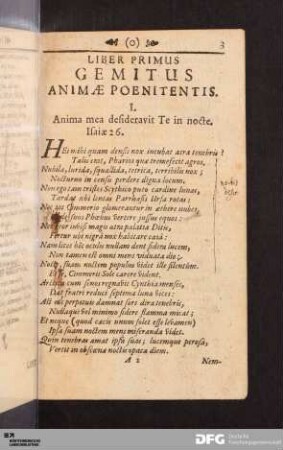 (0) 3
LIBER PRIMUS
GEMITUS
ANIMÆ POENITENTIS.
I.
Anima mea desideravit Te in nocte.
Isaiæ 26.
HEi mihi quam densis nox incubat atra tenebris?
Talis erat, Pharios quæ tremefecit agros,
Nubila, lurida, squallida, tetrica, terribilis nox;
Nocturno in censu perdere digna locum.
Non ego tam tristes Scythico puto cardine lunas,
Tardat ubi lentas Parrhasis Ursa rotas:
Nec tot Cimmerio glomerantur in æthere nubes,
Phœbus vertere jussus equos:
Nec reor invisi magis atra palatia Ditis,
Fertur ubi nigra nox habitare casa:
Nam licet hic oculis nullam dent sidera lucem,
Non tamen est omni mens viduata die;
Nocte, suam noctem populus videt ille silentem,
Et se, Cimmerii Sole carere vident.
cum senos regnabit Cynthia menses,
Dat fratri reduci septima luna vices:
Ast me perpetuis damnat sors dira tenebris,
Nullaque vel minimo sidere flamma micat;
Et neque (quod cæcis unum solet esse levamen)
Ipsa suam noctem mens miseranda videt.
Quin tenebras amat ipsa suas; lucemque perosa,
Vertit in obscœna noctis opata diem.
A 2 Nem-
DFG